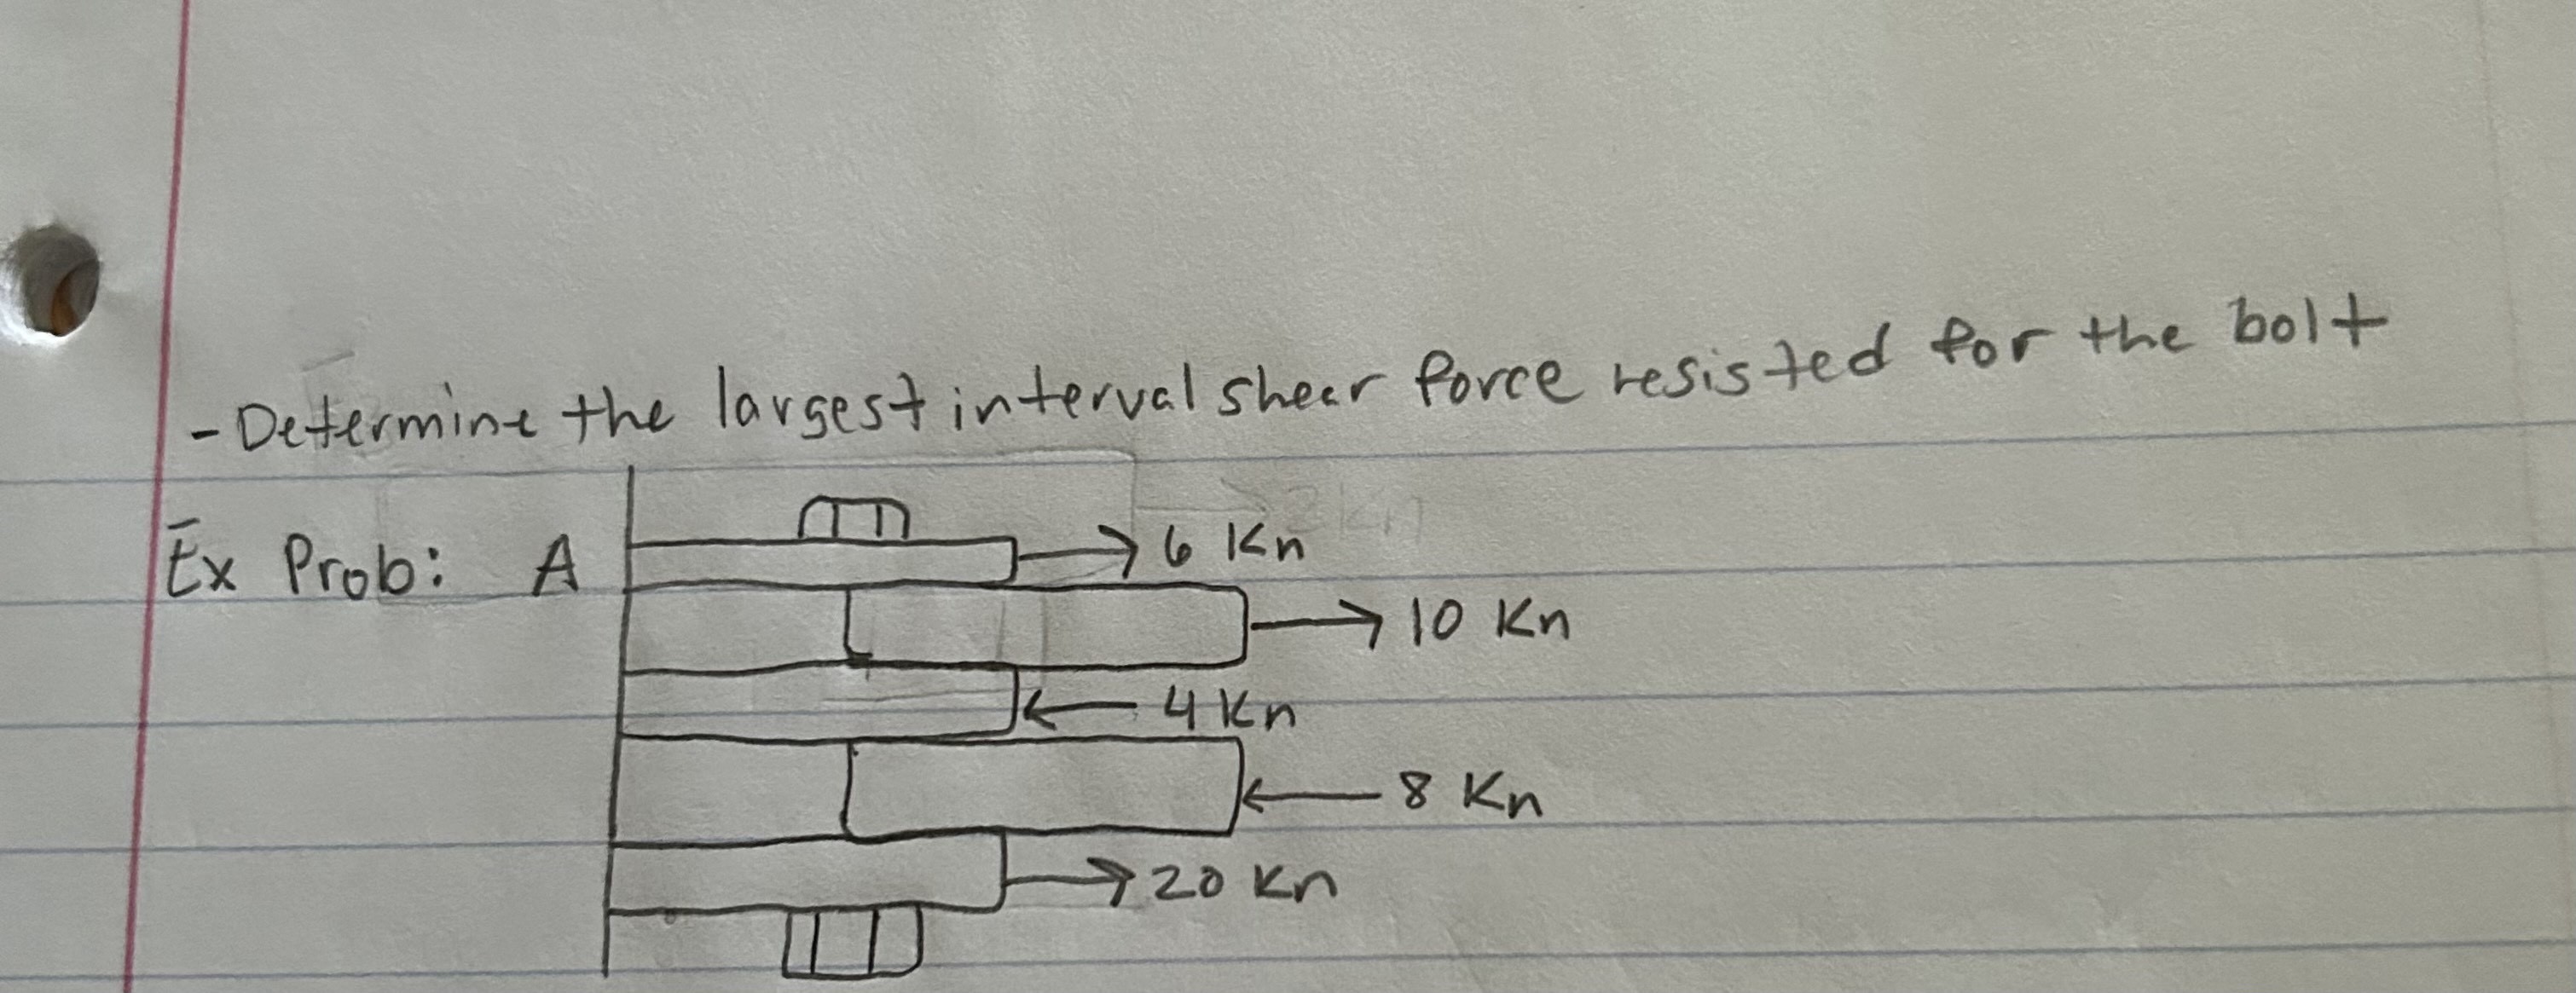 - Determine the largest interval shear force resisted for the bolt
Ex Prob: A
6 Kn
10 Kn
4 Kn
8 Kn
20 Kn